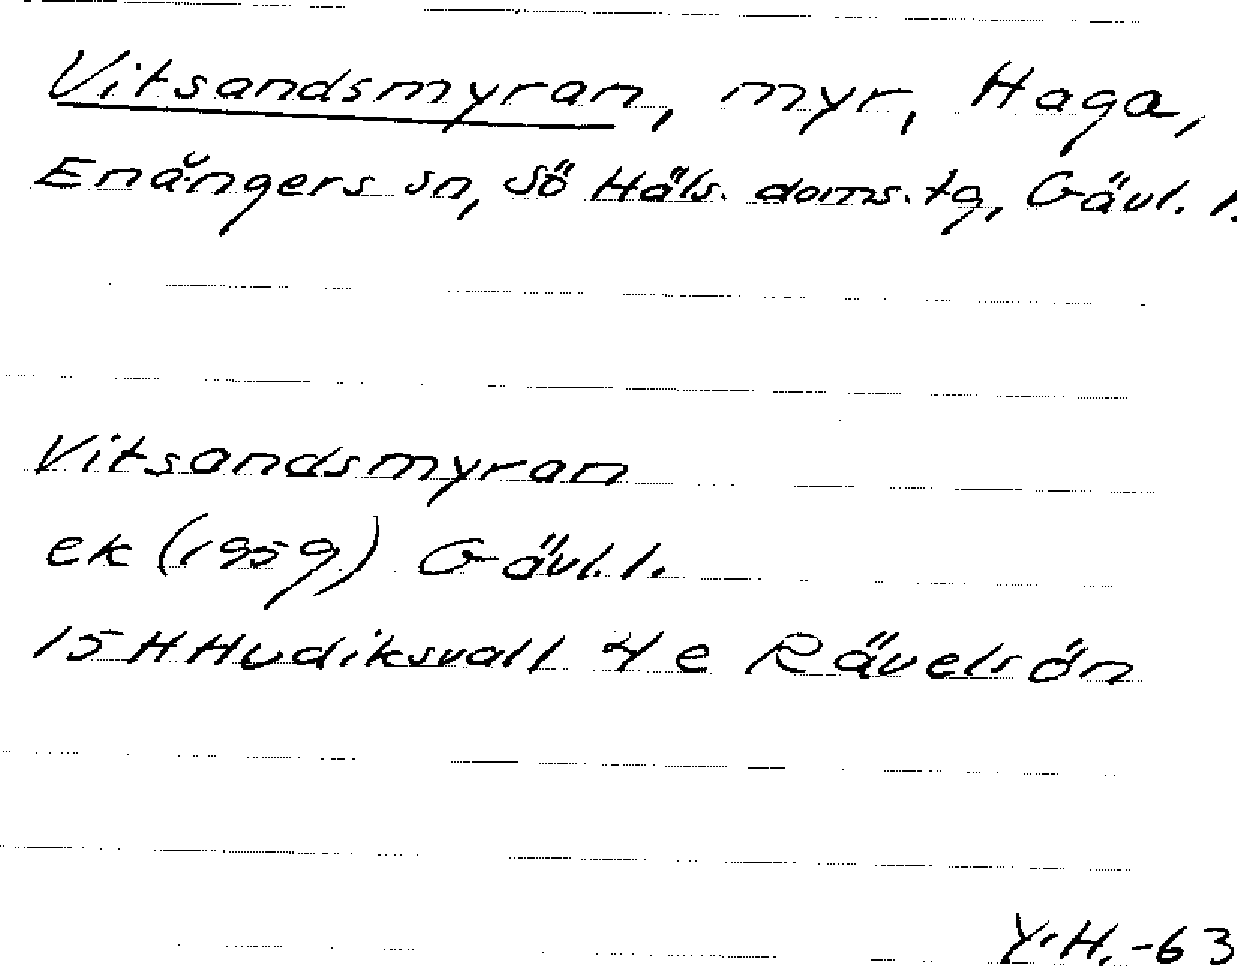 Vitsandsmyran, myr, Haga,
Enångers sn, Sö Häls. doms. tg, Gävl. l.
Vitsandsmyran
ek (1959) Gävl. l.
15 H Hudiksvall 4 e Rävelsön
Y.H. -63